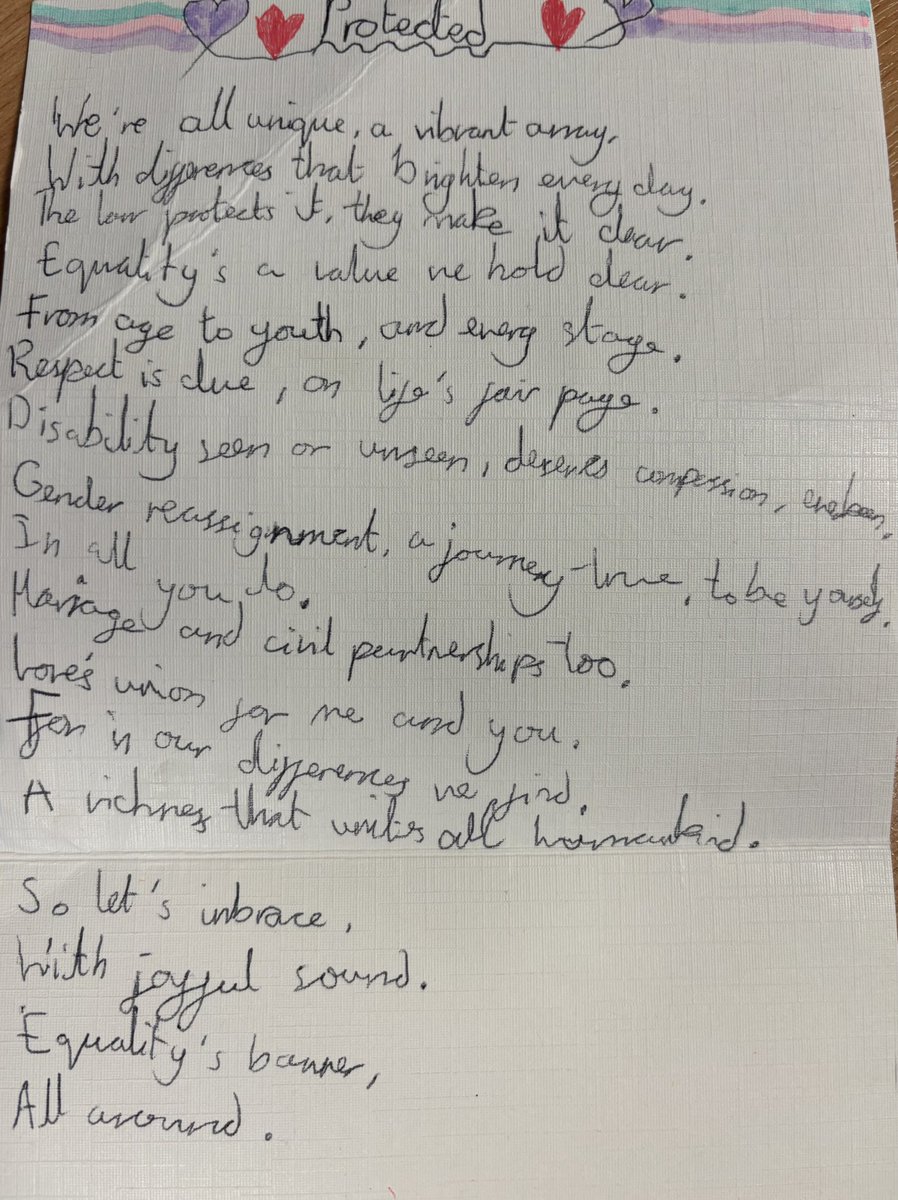 Protected
We're all unique, a vibrant array,
With differences that brighten every day.
The law protects it, they make it clear.
Equality's a value we hold dear.
From age to youth, and every stage.
Respect is due, on life's fair page.
Disability seen or unseen, deserves compession,
Gender reassignment, a journey true, to be yourself,
In all you do.
Marriage and civil partnerships too.
Love's union for me and you.
For in our differences we find,
A richness that unites all
So let's inbrace,
With joyful sound.
Equality's banner,
All around.